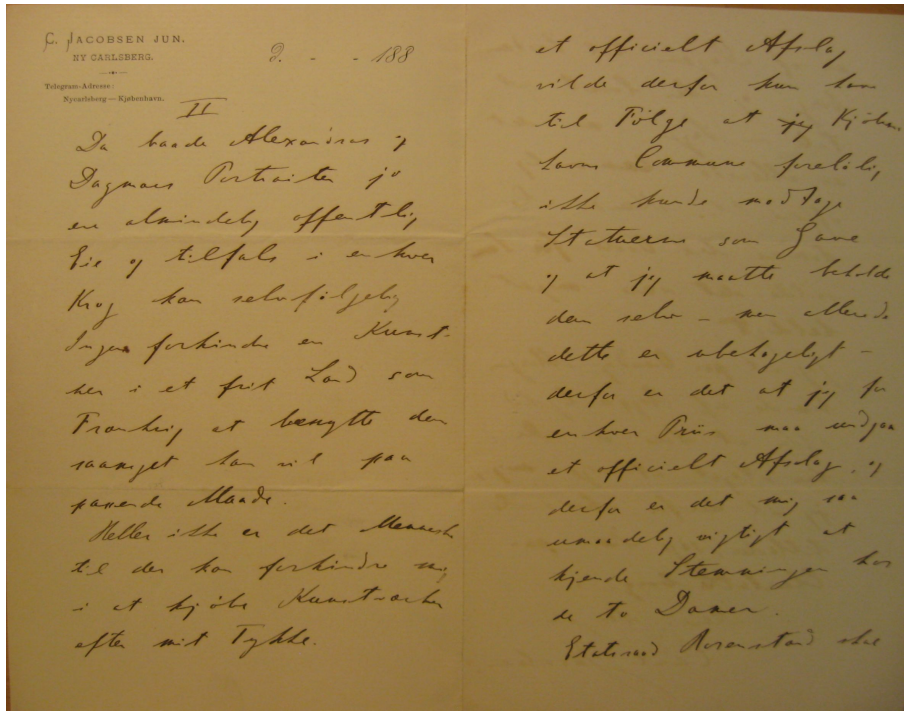 C. JACOBSEN JUN.
NY CARLSBERG.
Telegram-Adresse:
Nycarlsberg — Kjøbenhavn.
2. - - 188
II
Da baade Alexandras og
Dagmars Portraiter jo
ere almindelig offentlig
Eie og tilfals i enhver
Krog kan selvfølgelig
Ingen forhindre en Kunst-
ner i et frit Land som
Frankrig at benytte dem
saameget han vil paa
passende Maade.
Heller ikke er det Menneske
til der kan forhindre mig
i at kjøbe Kunstværker
efter mit Tykke.
et officielt Afslag
vilde derfor kun have
til Følge at jeg Kjøben
havns Commune foreløbig
ikke kunde modtage
Statuerne som Gave
og at jeg maatte beholde
dem selv – men allerede
dette er ubehageligt –
derfor er det at jeg for
enhver Priis maa undgaa
et officielt Afslag, og
derfor er det mig saa
umaadelig vigtigt at
kjende Stemningen hos
de to Damer.
Etatsraad Rosenstand skal